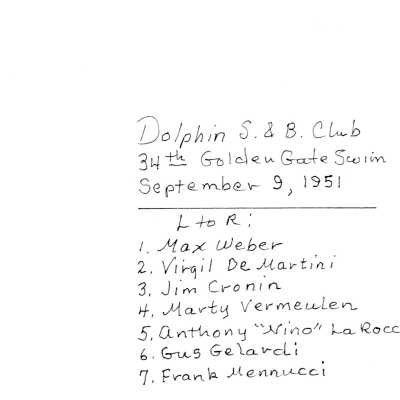 Dolphin S. & B. Club
34th Golden Gate Swim
September 9, 1951
L to R:
1. Max Weber
2. Virgil De Martini
3. Jim Cronin
4. Marty Vermeulen
5. Anthony "Nino" La Rocc
6. Gus Gelardi
7. Frank Mennucci